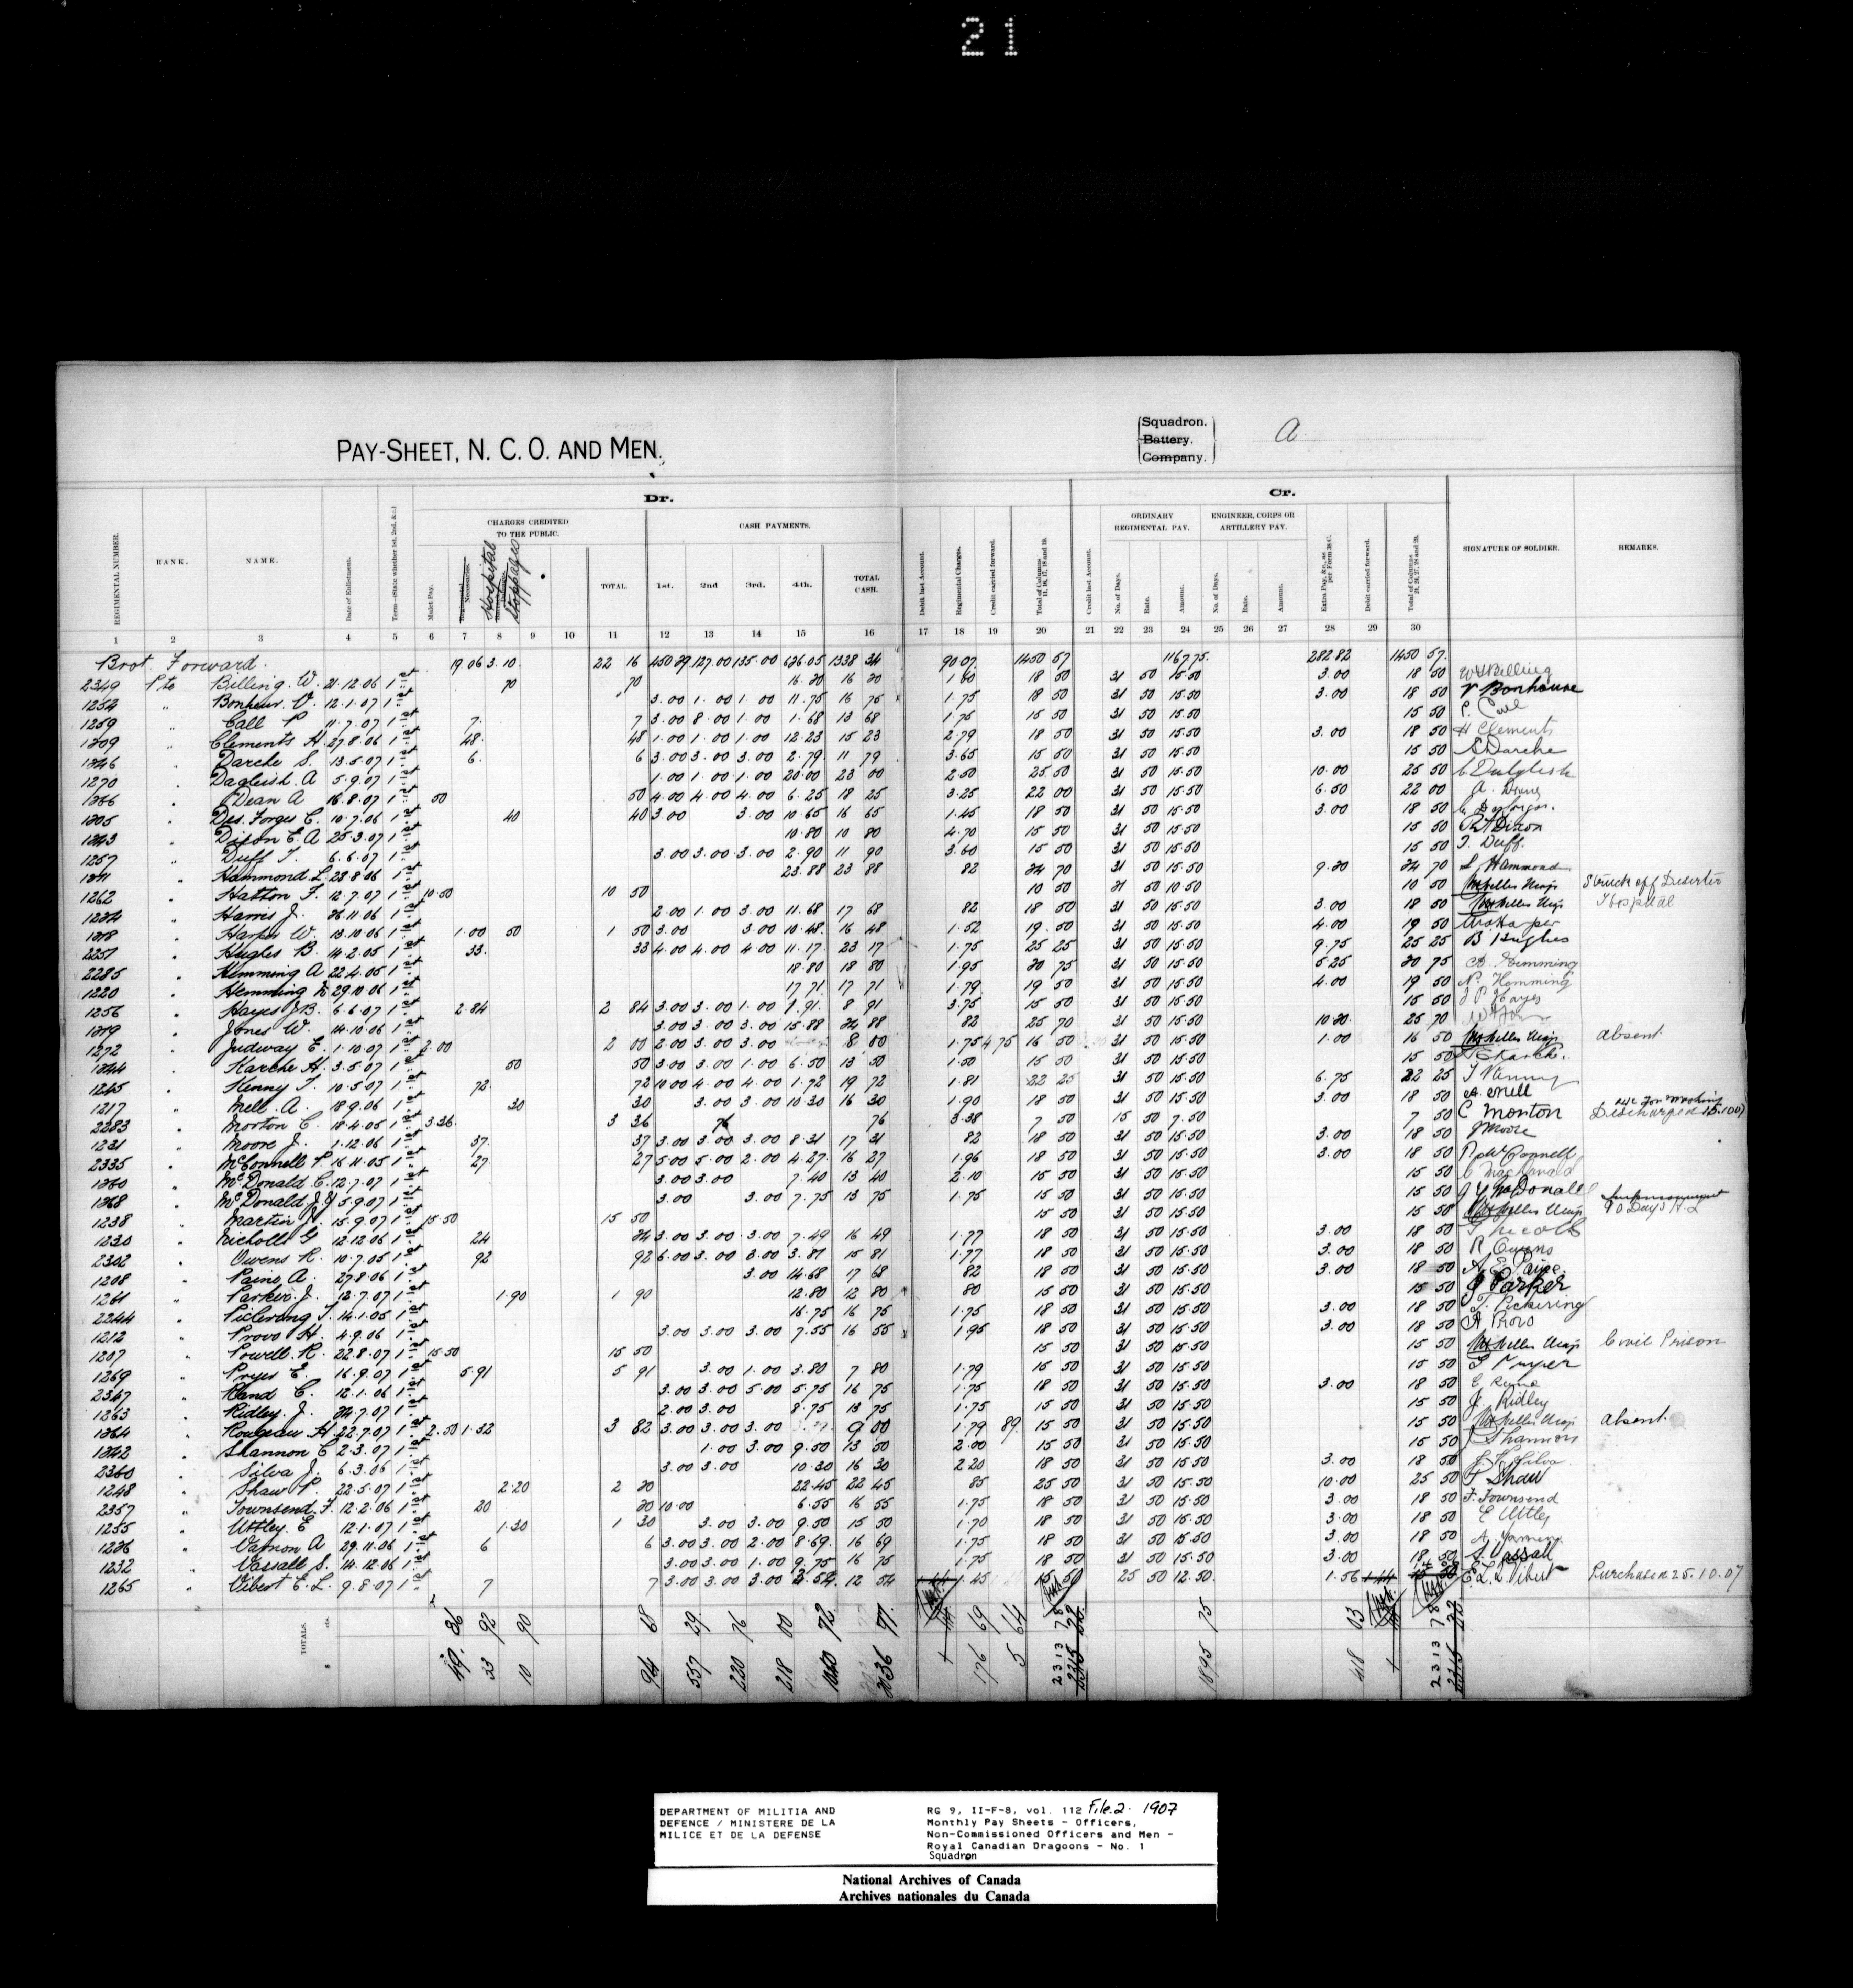 21
PAY-SHEET, N. C. O. AND MEN.
Squadron.
Battery.
Company.
A
Dr.
Cr.
CHARGES CREDITED TO THE PUBLIC.
CASH PAYMENTS.
ORDINARY REGIMENTAL PAY.
ENGINEER, CORPS OR ARTILLERY PAY.
REGIMENTAL NUMBER. RANK. NAME. Date of Enlistment. Term—(State whether 1st, 2nd, &c.) Mulct Pay. Necessaries. Hospital Stoppages TOTAL 1st. 2nd 3rd. 4th. TOTAL CASH. Debit last Account. Regimental Charges. Credit carried forward. Total of Columns Credit last Account. No. of Days. Rate. Amount. No. of Days. Rate. Amount. Extra Pay, &c., as per Form 28 C. Debit carried forward. Total of Columns SIGNATURE OF SOLDIER. REMARKS.
1 2 3 4 5 6 7 8 9 10 11 12 13 14 15 16 17 18 19 20 21 22 23 24 25 26 27 28 29 30
Brot. Forward. 19 06 3.10 22 16 450 29 127.00 135.00 626.05 1338 34 90 07 1450 57 1167.75 282 82 1450 57
2349 Pte Billing. W. 21.12.06 1st 70 70 16.20 16 20 1 60 18 50 31 50 15.50 3.00 18 50
1254 " Bonheur. V. 12.1.07 1st 3.00 1.00 1.00 11.75 16 75 1.75 18 50 31 50 15.50 3.00 18 50 V Bonheure
1259 " Call P 11.7.07 1st 7 7 3.00 8.00 1.00 1.68 13 68 1.75 15 50 31 50 15.50 15 50 P. Call
1209 " Clements H. 27.8.06 1st 48 48 1.00 1.00 1.00 12.23 15 23 2.79 18 50 31 50 15.50 3.00 18 50 H Clements
1246 " Darche S. 13.5.07 1st 6 6 3.00 3.00 3.00 2.79 11 79 3.65 15 50 31 50 15.50 15 50 S Darche
1270 " Dagleish. A 5.9.07 1st 1.00 1.00 1.00 20.00 23 00 2.50 25 50 31 50 15.50 10.00 25 50
1266 " Dean A 16.8.07 1st 50 50 4.00 4.00 4.00 6.25 18 25 3.25 22 00 31 50 15.50 6.50 22 00
1205 " Des. Forges C. 10.7.06 1st 40 40 3.00 3.00 10.65 16 65 1.45 18 50 31 50 15.50 3.00 18 50
1243 " Dixon E. A 25.3.07 1st 10.80 10 80 4.70 15 50 31 50 15.50 15 50
1257 " Duff T. 6.6.07 1st 3.00 3.00 3.00 2.90 11 90 3.60 15 50 31 50 15.50 15 50 T. Duff.
1211 " Hammond L. 23.8.06 1st 23.88 23 88 82 24 70 31 50 15.50 9.20 24 70 L Hammond
1262 " Hatton F. 12.7.07 1st 10.50 10 50 10 50 21 50 10.50 10 50 Struck off Deserter
1224 " Harris J. 26.11.06 1st 2.00 1.00 3.00 11.68 17 68 82 18 50 31 50 15.50 3.00 18 50 Hospital
1218 " Harper W. 13.10.06 1st 1.00 50 1 50 3.00 3.00 10.48 16 48 1.52 19.50 31 50 15.50 4.00 19 50
2257 " Hughes B. 14.2.05 1st 33 33 4.00 4.00 4.00 11.17 23 17 1.75 25 25 31 50 15.50 9.75 25 25 B Hughes
2285 " Hemming A 22.4.05 1st 18.80 18 80 1.95 20 75 31 50 15.50 5.25 20 75 A. Hemming
1220 " Hemming N 29.10.06 1st 17.71 17 71 1.79 19 50 31 50 15.50 4.00 19 50 N. Hemming
1256 " Hayes J.B. 6.6.07 1st 2.84 2 84 3.00 3.00 1.00 1.91 8 91 3.75 15 50 31 50 15.50 15 50 J P Hayes
1219 " Jones W. 14.10.06 1st 3.00 3.00 3.00 15.88 24 88 82 25 70 31 50 15.50 10.20 25 70
1272 " Judway E. 1.10.07 1st 2.00 2 00 2.00 3.00 3.00 8 00 1.75 4 75 16 50 31 50 15.50 1.00 16 50 absent
1244 " Karche H. 3.5.07 1st 50 50 3.00 3.00 1.00 6.50 13 50 1.50 15 50 31 50 15.50 15 50
1245 " Kenny T. 10.5.07 1st 72 72 10.00 4.00 4.00 1.72 19 72 1.81 22 25 31 50 15.50 6.75 22 25 T Kenny
1217 " Mell. A. 18.9.06 1st 30 30 3.00 3.00 10.30 16 30 1.90 18 50 31 50 15.50 3.00 18 50 A. Mell
2283 " Morton C. 18.4.05 1st 3.36 3 36 76 76 3.38 7 50 15 50 7.50 7 50 C Morton Discharged 15.10.07
1231 " Moore J. 1.12.06 1st 37 37 3.00 3.00 3.00 8.31 17 31 82 18 50 31 50 15.50 3.00 18 50 J Moore
2335 " McConnell P. 16.11.05 1st 27 27 5.00 5.00 2.00 4.27 16 27 1.96 18 50 31 50 15.50 3.00 18 50 P McConnell
1260 " McDonald C. 12.7.07 1st 3.00 3.00 7.40 13 40 2.10 15 50 31 50 15.50 15 50 C MacDonald
1268 " McDonald J.Y 5.9.07 1st 3.00 3.00 7.75 13 75 1.75 15 50 31 50 15.50 15 50 J Y McDonall
1238 " Martin 15.9.07 1st 15.50 15 50 15 50 31 50 15.50 15 50 Imprisonment 90 Days H.L
1230 " Nicholls G 12.12.06 1st 24 24 3.00 3.00 3.00 7.49 16 49 1.77 18 50 31 50 15.50 3.00 18 50
2302 " Owens R. 10.7.05 1st 92 92 6.00 3.00 3.00 3.81 15 81 1.77 18 50 31 50 15.50 3.00 18 50 R Owens
1208 " Paine, A. 27.8.06 1st 3.00 14.68 17 68 82 18 50 31 50 15.50 3.00 18 50 A. E. Paine.
1261 " Parker. J. 12.7.07 1st 1.90 1 90 12.80 12 80 80 15 50 31 50 15.50 15 50 J Parker
2244 " Pickering T. 14.1.05 1st 16.75 16 75 1.75 18 50 31 50 15.50 3.00 18 50 T. Pickering
1212 " Provo H. 4.9.06 1st 3.00 3.00 3.00 7.55 16 55 1 95 18 50 31 50 15.50 3.00 18 50 H Provo
1207 " Powell. R. 22.8.07 1st 15.50 15 50 15 50 31 50 15.50 15 50 Civil Prison
1269 " Pryer E. 16.9.07 1st 5.91 5 91 3.00 1.00 3.80 7 80 1.79 15 50 31 50 15.50 15 50
2347 " Rand C. 12.1.06 1st 3.00 3.00 5.00 5.75 16 75 1.75 18 50 31 50 15.50 3.00 18 50
1263 " Ridley. J. 24.7.07 1st 2.00 3.00 8.75 13 75 1.75 15 50 31 50 15.50 15 50 J. Ridley
1264 " Rougeau H. 22.7.07 1st 2.50 1.32 3 82 3.00 3.00 3.00 9 00 1.79 89 15 50 31 50 15.50 15 50 absent.
1242 " Shannon C 2.3.07 1st 1.00 3.00 9.50 13 50 2.00 15 50 31 50 15.50 15 50 Shannon
2360 " Silva J. 6.3.06 1st 3.00 3.00 10.30 16 30 2 20 18 50 31 50 15.50 3.00 18 50 Silva
1248 " Shaw P. 22.5.07 1st 2.20 2 20 22.45 22 45 85 25 50 31 50 15.50 10.00 25 50 P Shaw
2357 " Townsend. F. 12.2.06 1st 20 20 10.00 6.55 16 55 1.75 18 50 31 50 15.50 3.00 18 50 F. Townsend
1255 " Uttley. E 12.1.07 1st 1.30 1 30 3.00 3.00 9.50 15 50 1.70 18 50 31 50 15.50 3.00 18 50 E Uttley
1226 " Varnon A 29.11.06 1st 6 6 3.00 3.00 2.00 8.69 16 69 1.75 18 50 31 50 15.50 3.00 18 50
1232 " Vassall S. 14.12.06 1st 3.00 3.00 1.00 9.75 16 75 1.75 18 50 31 50 15.50 3.00 18 50 S. Vassall
1265 " Vibert E. L. 9.8.07 1st 7 7 3.00 3.00 3.00 3.54 12 54 1.44 1.45 15 50 25 50 12.50 1.56 1.44 E. L. L Vibert Purchased 25.10.07
TOTALS. 49.86 33 92 10 90 94 68 557 29 220 76 218 00 1040 72 2036 77 176 69 5 64 2313 78 1895 75 418 03 2313 78
DEPARTMENT OF MILITIA AND
DEFENCE / MINISTERE DE LA
MILICE ET DE LA DEFENSE
RG 9, II-F-8, vol. 112 File.2. 1907
Monthly Pay Sheets - Officers,
Non-Commissioned Officers and Men -
Royal Canadian Dragoons - No. 1
Squadron
National Archives of Canada
Archives nationales du Canada